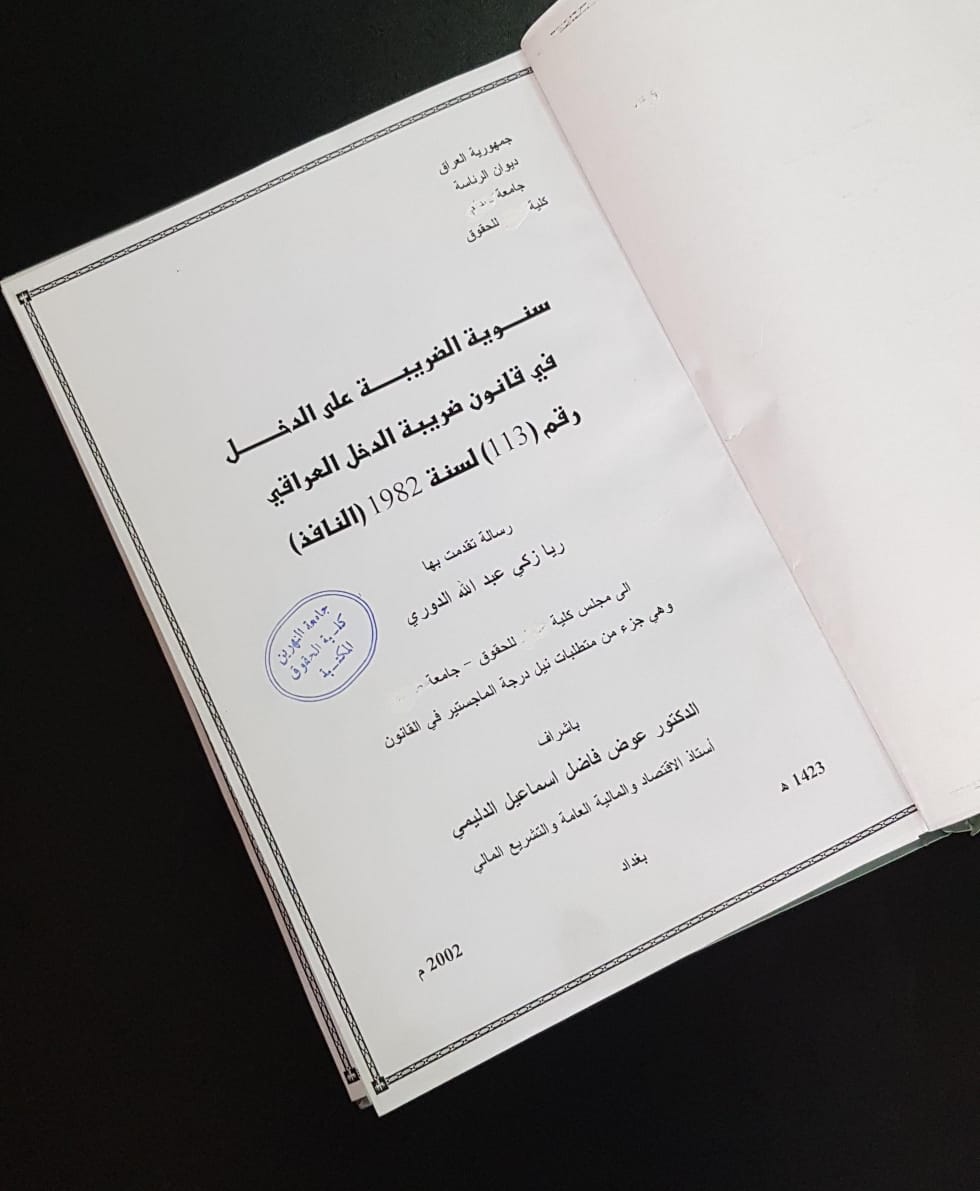 جمهورية العراق
ديوان الرئاسة
جامعة
كلية للحقوق
سنوية الضريبة على الدخل
في قانون ضريبة الدخل العراقي
رقم (113) لسنة 1982 (النافذ)
رسالة تقدمت بها
ربا زكي عبد الله الدوري
الى مجلس كلية للحقوق - جامعة
وهي جزء من متطلبات نيل درجة الماجستير في القانون
باشراف
الدكتور عوض فاضل اسماعيل الدليمي
أستاذ الاقتصاد والمالية العامة والتشريع المالي
بغداد
1423 هـ
2002 م
جامعة النهرين
كلية الحقوق
المكتبة